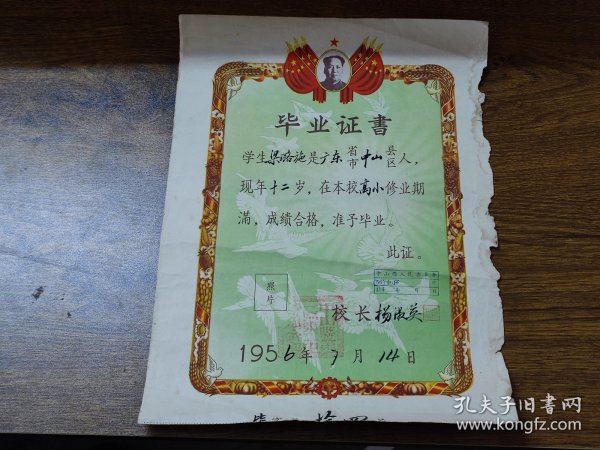 毕业证書
学生梁路施是广东省市中山县区人，
现年十二岁，在本校高小修业期
满，成绩合格，准予毕业。
此证。
照片
校长杨淑英
1956年7月14日
孔夫子旧书网
www.kongfz.com